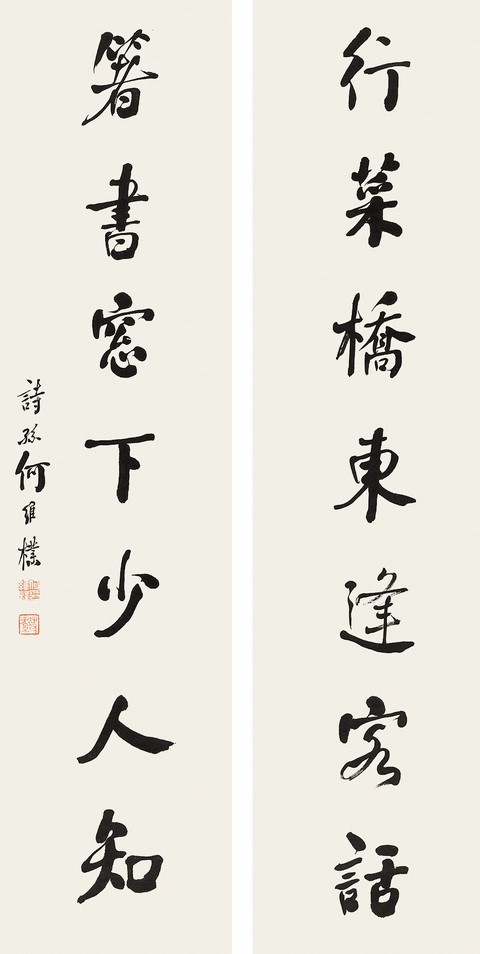 行菜橋東逢客話
箸書窓下少人知
詩孫何維樸